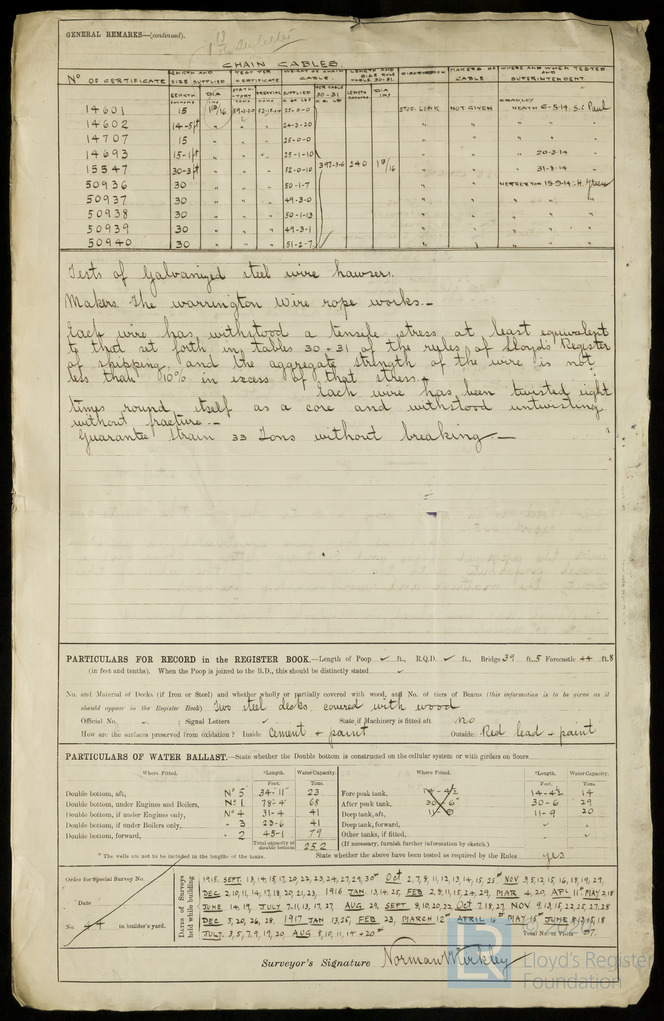 GENERAL REMARKS—(continued).
CHAIN CABLES.
No OF CERTIFICATE LENGTH AND SIZE SUPPLIED TEST PER CERTIFICATE WEIGHT OF CHAIN CABLE. LENGTH AND SIZE PER TABLE 30-31. DESCRIPTION MAKERS OF CABLE WHERE AND WHEN TESTED AND SUPERINTENDENT.
LENGTH DIA STATUTORY BREAKING SUPPLIED PER TABLE 30-31 LENGTH DIA
14601 15 1 13/16 25-0-0 STUD. LINK NOT GIVEN CRADLEY HEATH 6-5-14. S.C. Paul
14602 14-5ft " " " 24-3-20 " " " "
14707 15 " " " 25-0-0 " " " "
14693 15-1ft " " " 25-1-10 " " 20-3-14 "
15547 30-3ft " " " 52-0-10 397-3-6 240 1 13/16 " " 31-3-14 "
50936 30 " " " 50-1-7 " " NETHERTON 15-9-14. H. Green
50937 30 " " " 49-3-0 " " " "
50938 30 " " " 50-1-13 " " " "
50939 30 " " " 49-3-1 " " " "
50940 30 " " " 51-2-7 " " " "
Tests of Galvanized steel wire hawsers.
Makers. The Warrington Wire rope works.—
Each wire has withstood a tensile stress at least equivalent
to that set forth in tables 30-31 of the rules of Lloyd's Register
of shipping, and the aggregate strength of the wire is not
less than 10% in excess of that stress.—
Each wire has been twisted eight
times round itself as a core and withstood untwisting
without fracture.—
Guarantee strain 33 Tons without breaking.—
PARTICULARS FOR RECORD in the REGISTER BOOK.—Length of Poop ✓ ft., R.Q.D. ✓ ft., Bridge 39 ft. 5 Forecastle 44 ft. 8
(in feet and tenths). When the Poop is joined to the B.D., this should be distinctly stated
No. and Material of Decks (if Iron or Steel) and whether wholly or partially covered with wood, and No. of tiers of Beams (this information is to be given as it
should appear in the Register Book) Two steel decks, covered with wood
Official No. ; Signal Letters State if Machinery is fitted aft no
How are the surfaces preserved from oxidation? Inside Cement + paint Outside Red lead + paint
PARTICULARS OF WATER BALLAST.—State whether the Double bottom is constructed on the cellular system or with girders on floors
Where Fitted. *Length. Water Capacity. Where Fitted. *Length. Water Capacity.
Feet. Tons. Feet. Tons.
Double bottom, aft, No 5 34-11 23 Fore peak tank, 14-4½ 14-4½ 14
Double bottom, under Engines and Boilers, No 1 78-4 68 After peak tank, 30-6 30-6 29
Double bottom, if under Engines only, No 4 31-4 41 Deep tank, aft, 11-9 20
Double bottom, if under Boilers only, - 3 23-6 41 Deep tank, forward,
Double bottom, forward, - 2 45-1 79 Other tanks, if fitted,
Total capacity of double bottom 252 (If necessary, furnish further information by sketch.)
* The wells are not to be included in the lengths of the tanks. State whether the above have been tested as required by the Rules yes
Order for Special Survey No.
Date
No. 44 in builder's yard.
Dates of Surveys held while building
1915. SEPT. 13, 14, 15, 17, 20, 22, 23, 24, 27, 29, 30th Oct 2, 7, 8, 11, 12, 13, 14, 15, 25th NOV 3, 5, 12, 15, 16, 18, 19, 29,
DEC 2, 10, 11, 14, 17, 18, 20, 21, 23, 1916 JAN 13, 14, 25, FEB 2, 8, 11, 15, 24, 29, MAR 4, 20, APL 11th MAY 2, 18
JUNE 14, 19, JULY 7, 11, 13, 17, 27, AUG 29, SEPT 8, 10, 20, 22, Oct 7, 18, 27, NOV 9, 13, 15, 22, 25, 27, 28
DEC 5, 20, 26, 28, 1917 JAN 13, 25, FEB 23, MARCH 12th APRIL 16th MAY 15th JUNE 8, 13, 15, 18
JULY. 3, 5, 7, 9, 19, 20 AUG 8, 10, 11, 14 + 20th Total No. of Visits
Surveyor's Signature Norman W Kirkley
Lloyd's Register
Foundation